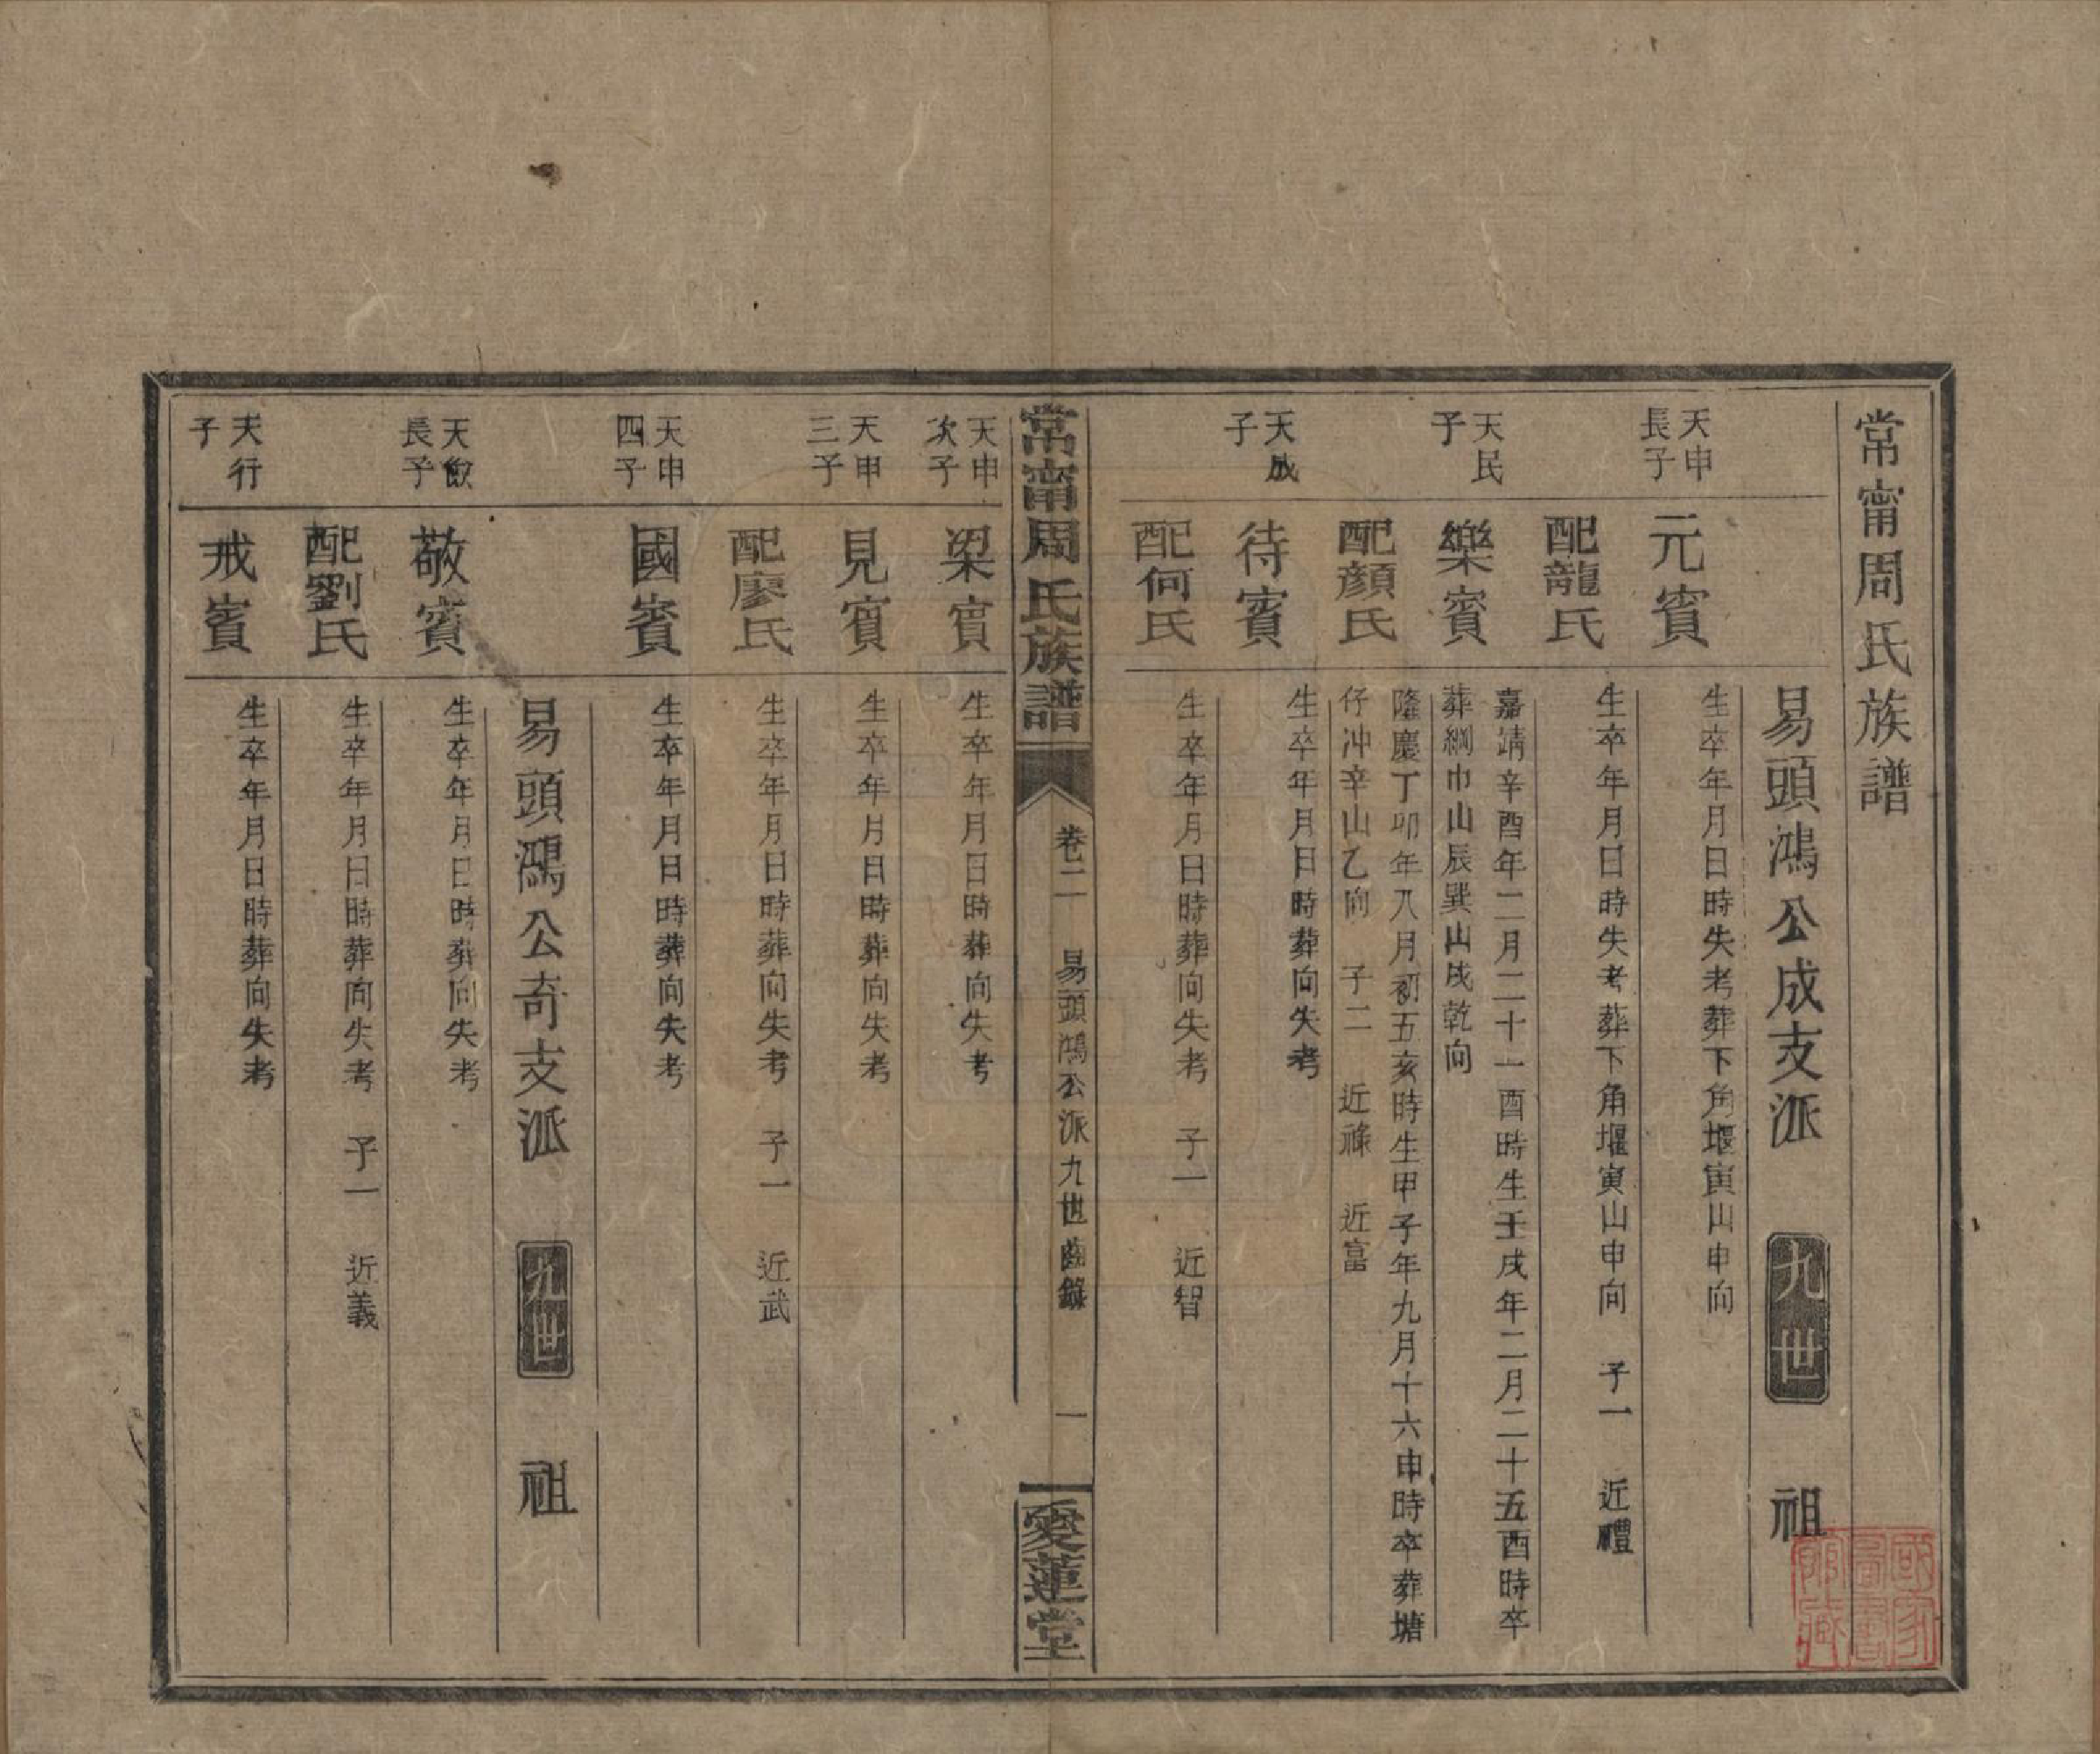 常甯周氏族譜
易頭鴻公成支派 九世 祖
天申長子
元賓
生卒年月日時失考葬下角堰寅山申向
配龍氏
生卒年月日時失考葬下角堰寅山申向 子一 近禮
天民子
樂賓
嘉靖辛酉年二月二十一酉時生壬戌年二月二十五酉時卒
葬綱巾山辰巽山戌乾向
配顏氏
隆慶丁卯年八月初五亥時生甲子年九月十六申時卒葬塘
仔冲辛山乙向 子二 近祿 近富
天成子
待賓
生卒年月日時葬向失考
配何氏
生卒年月日時葬向失考 子一 近智
常甯周氏族譜 卷二 易頭鴻公派九世齒錄 一 愛蓮堂
天申次子
梁賓
生卒年月日時葬向失考
天申三子
見賓
生卒年月日時葬向失考
配廖氏
生卒年月日時葬向失考 子一 近武
天申四子
國賓
生卒年月日時葬向失考
易頭鴻公奇支派 九世 祖
天飲長子
敬賓
生卒年月日時葬向失考
配劉氏
生卒年月日時葬向失考 子一 近義
天行子
戒賓
生卒年月日時葬向失考
國家圖書館藏